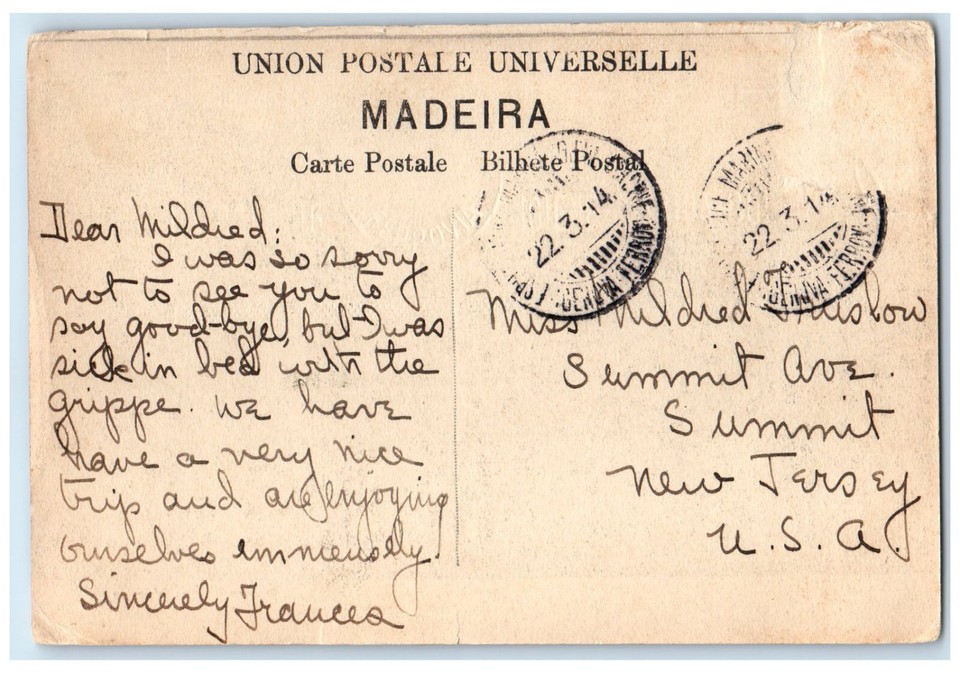 UNION POSTALE UNIVERSELLE
MADEIRA
Carte Postale Bilhete Postal
22.3.14
GENOVA FERROV
22.3.14
GENOVA FERROV
Dear Mildred:
I was so sorry
not to see you to
say good-bye, but I was
sick in bed with the
grippe. We have
have a very nice
trip and are enjoying
ourselves immensely.
Sincerely Frances
Miss Mildred
Summit Ave.
Summit
New Jersey
U.S.A.